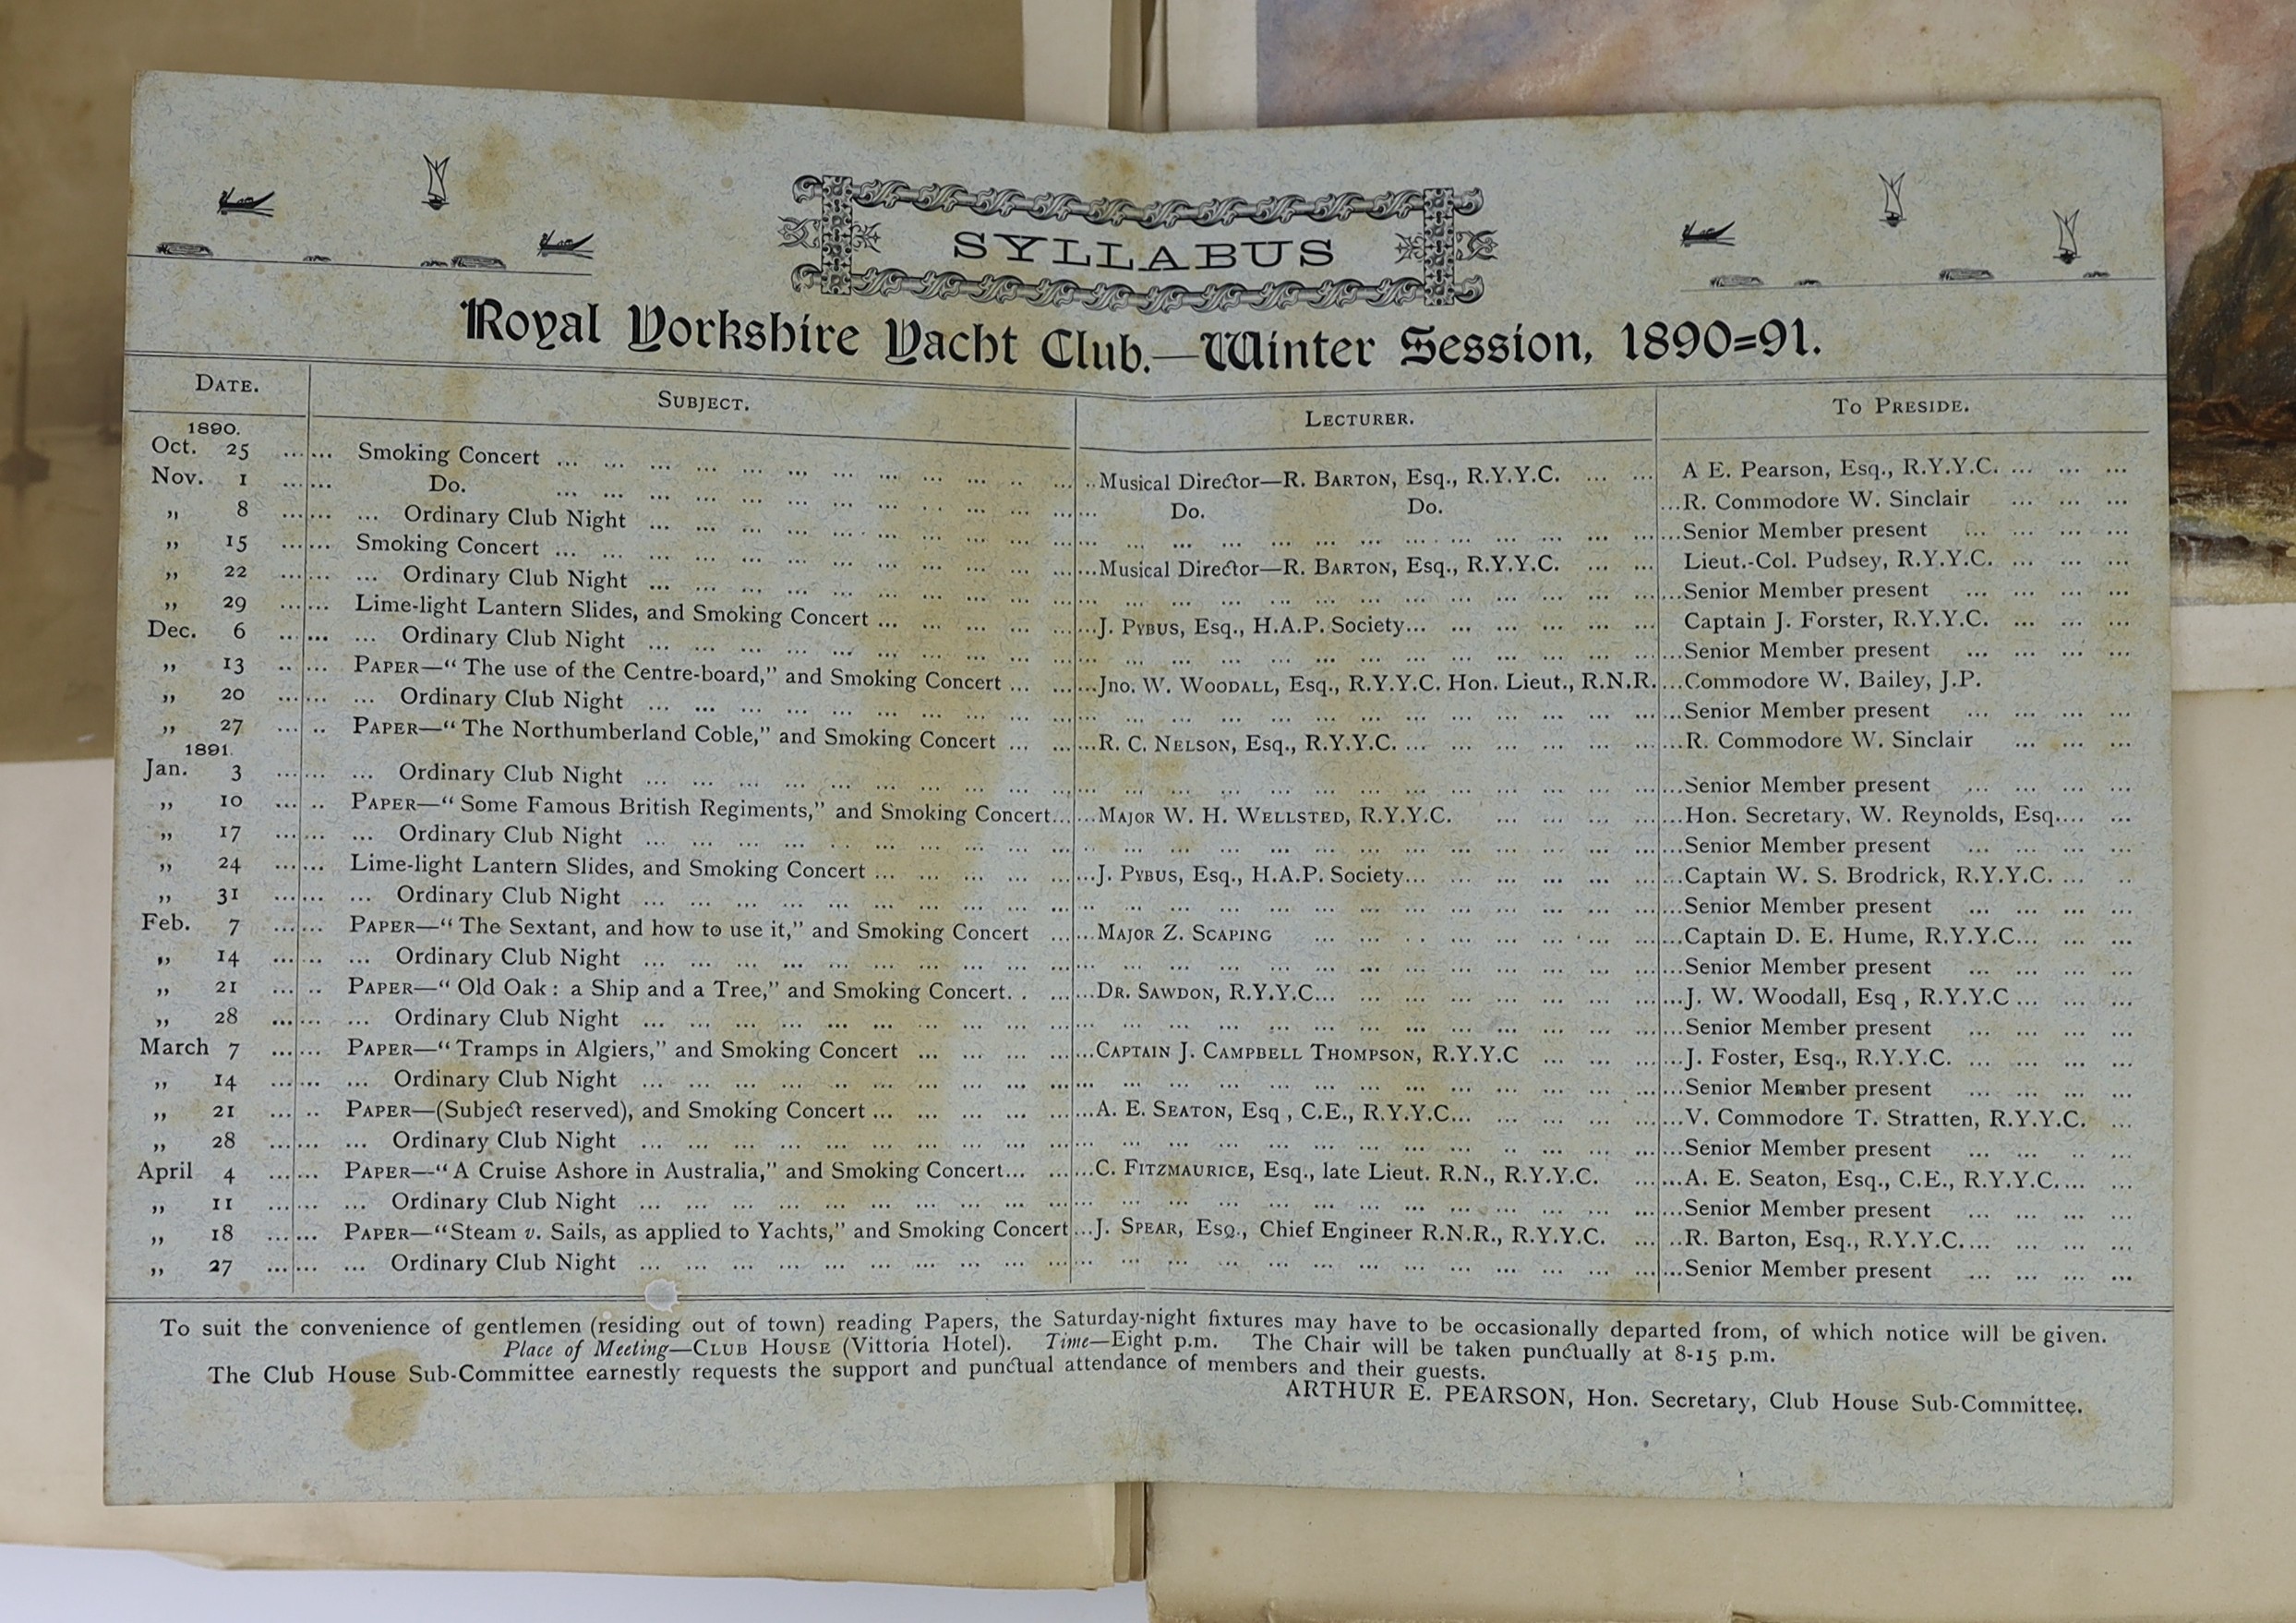 SYLLABUS
Royal Yorkshire Yacht Club.—Winter Session, 1890=91.
DATE. SUBJECT. LECTURER. TO PRESIDE.
1890.
Oct. 25 ... ... Smoking Concert ... ... Musical Director—R. BARTON, Esq., R.Y.Y.C. ... ... A E. Pearson, Esq., R.Y.Y.C. ... ... ...
Nov. 1 ... ... Do. ... ... Do. Do. ... R. Commodore W. Sinclair ... ... ...
„ 8 ... ... ... Ordinary Club Night ... ... Senior Member present ... ... ... ...
„ 15 ... ... Smoking Concert ... ... Musical Director—R. BARTON, Esq., R.Y.Y.C. ... ... Lieut.-Col. Pudsey, R.Y.Y.C. ... ... ...
„ 22 ... ... ... Ordinary Club Night ... ... Senior Member present ... ... ... ...
„ 29 ... ... Lime-light Lantern Slides, and Smoking Concert ... ... J. PYBUS, Esq., H.A.P. Society... ... Captain J. Forster, R.Y.Y.C. ... ... ...
Dec. 6 ... ... ... Ordinary Club Night ... ... Senior Member present ... ... ... ...
„ 13 ... ... PAPER—“The use of the Centre-board,” and Smoking Concert ... ... Jno. W. WOODALL, Esq., R.Y.Y.C. Hon. Lieut., R.N.R. ... Commodore W. Bailey, J.P.
„ 20 ... ... ... Ordinary Club Night ... ... Senior Member present ... ... ... ...
„ 27 ... .. PAPER—“The Northumberland Coble,” and Smoking Concert ... ... R. C. NELSON, Esq., R.Y.Y.C. ... ... R. Commodore W. Sinclair ... ... ...
1891.
Jan. 3 ... ... ... Ordinary Club Night ... ... Senior Member present ... ... ... ...
„ 10 ... .. PAPER—“Some Famous British Regiments,” and Smoking Concert... ... MAJOR W. H. WELLSTED, R.Y.Y.C. ... ... Hon. Secretary, W. Reynolds, Esq.... ...
„ 17 ... ... ... Ordinary Club Night ... ... Senior Member present ... ... ... ...
„ 24 ... ... Lime-light Lantern Slides, and Smoking Concert ... ... J. PYBUS, Esq., H.A.P. Society... ... Captain W. S. Brodrick, R.Y.Y.C. ... ..
„ 31 ... ... ... Ordinary Club Night ... ... Senior Member present ... ... ... ...
Feb. 7 ... ... PAPER—“The Sextant, and how to use it,” and Smoking Concert ... ... MAJOR Z. SCAPING ... ... Captain D. E. Hume, R.Y.Y.C... ... ...
„ 14 ... ... ... Ordinary Club Night ... ... Senior Member present ... ... ... ...
„ 21 ... .. PAPER—“Old Oak : a Ship and a Tree,” and Smoking Concert. . ... DR. SAWDON, R.Y.Y.C... ... J. W. Woodall, Esq , R.Y.Y.C ... ... ...
„ 28 ... ... ... Ordinary Club Night ... ... Senior Member present ... ... ... ...
March 7 ... ... PAPER—“Tramps in Algiers,” and Smoking Concert ... ... CAPTAIN J. CAMPBELL THOMPSON, R.Y.Y.C ... ... J. Foster, Esq., R.Y.Y.C. ... ... ... ...
„ 14 ... ... ... Ordinary Club Night ... ... Senior Member present ... ... ... ...
„ 21 ... .. PAPER—(Subject reserved), and Smoking Concert ... ... A. E. SEATON, Esq , C.E., R.Y.Y.C... ... V. Commodore T. Stratten, R.Y.Y.C. ...
„ 28 ... ... ... Ordinary Club Night ... ... Senior Member present ... ... .. ...
April 4 ... ... PAPER—“A Cruise Ashore in Australia,” and Smoking Concert... ... C. FITZMAURICE, Esq., late Lieut. R.N., R.Y.Y.C. ... A. E. Seaton, Esq., C.E., R.Y.Y.C.... ...
„ 11 ... ... ... Ordinary Club Night ... ... Senior Member present ... ... ... ...
„ 18 ... ... PAPER—“Steam v. Sails, as applied to Yachts,” and Smoking Concert ... J. SPEAR, ESQ., Chief Engineer R.N.R., R.Y.Y.C. ... .. R. Barton, Esq., R.Y.Y.C.... ... ... ...
„ 27 ... ... ... Ordinary Club Night ... ... Senior Member present ... ... ... ...
To suit the convenience of gentlemen (residing out of town) reading Papers, the Saturday-night fixtures may have to be occasionally departed from, of which notice will be given.
Place of Meeting—CLUB HOUSE (Vittoria Hotel). Time—Eight p.m. The Chair will be taken punctually at 8-15 p.m.
The Club House Sub-Committee earnestly requests the support and punctual attendance of members and their guests.
ARTHUR E. PEARSON, Hon. Secretary, Club House Sub-Committee.